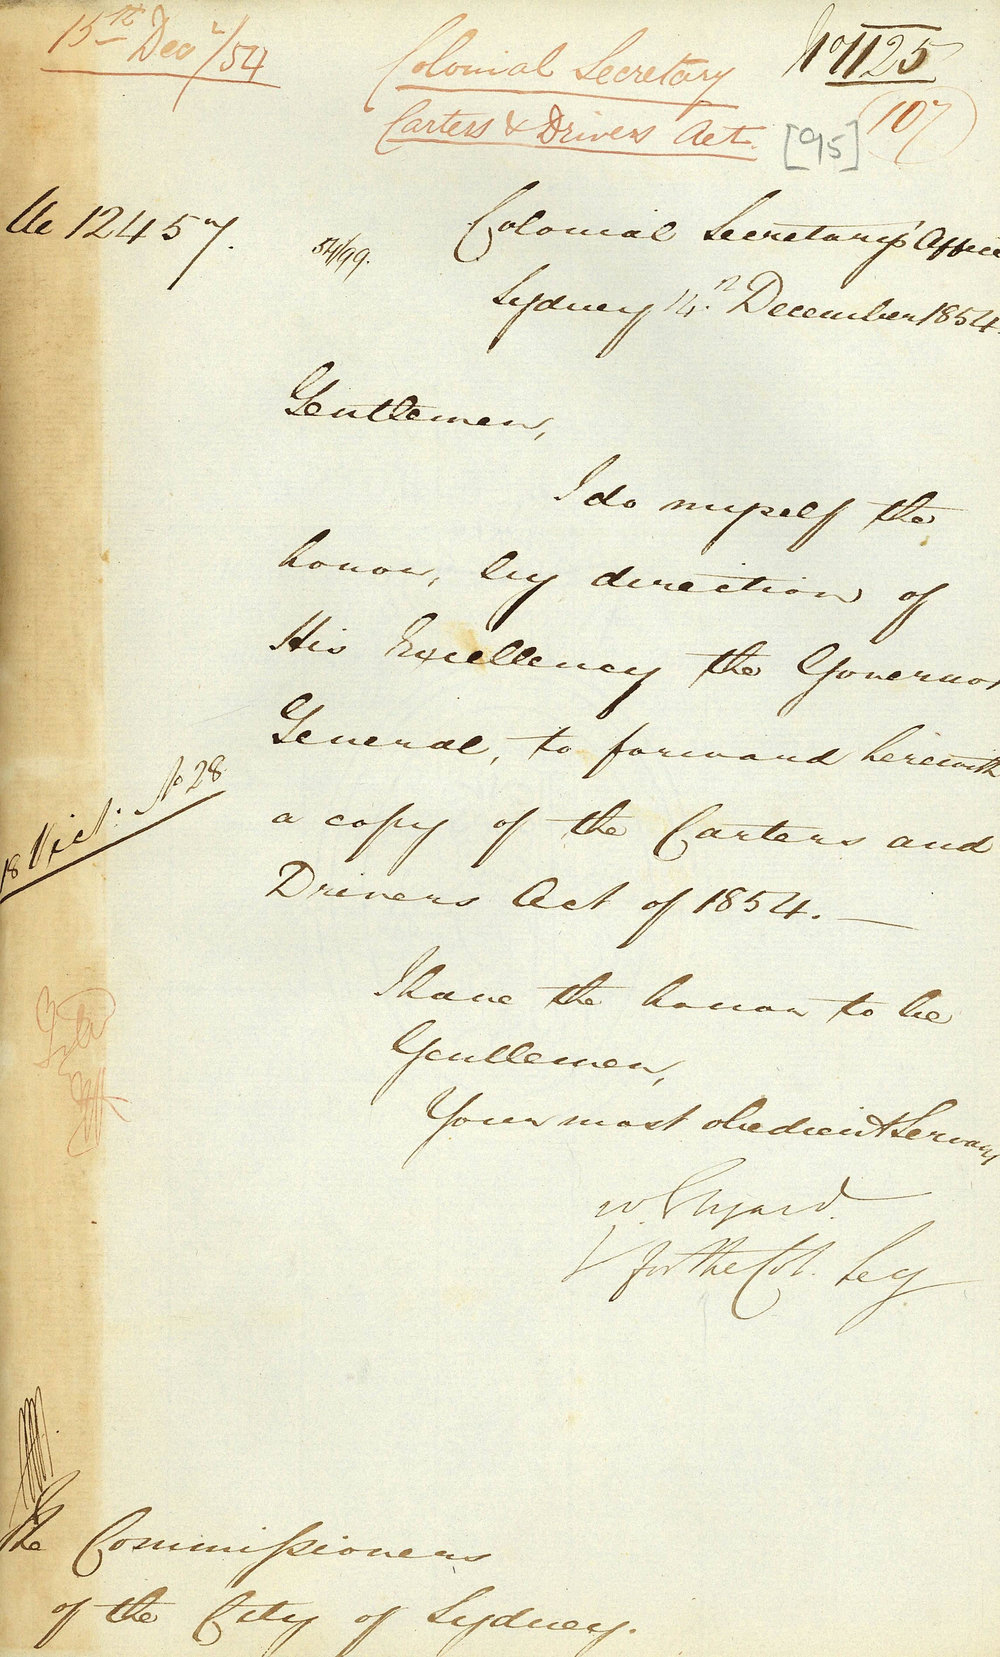 15th Decr/54
Colonial Secretary
No 1125
Carters & Drivers Act.
[95]
107
54/99.
Colonial Secretary's Office
Sydney 14.th December 1854.
Gentlemen,
I do myself the
honor, by direction of
His Excellency the Governor
General, to forward herewith
18 Vict: No 28
a copy of the Carters and
Drivers Act of 1854.
I have the honor to be
Gentlemen,
Your most obedient Servant
W. Elyard.
for the Col. Secy
The Commissioners
of the City of Sydney.